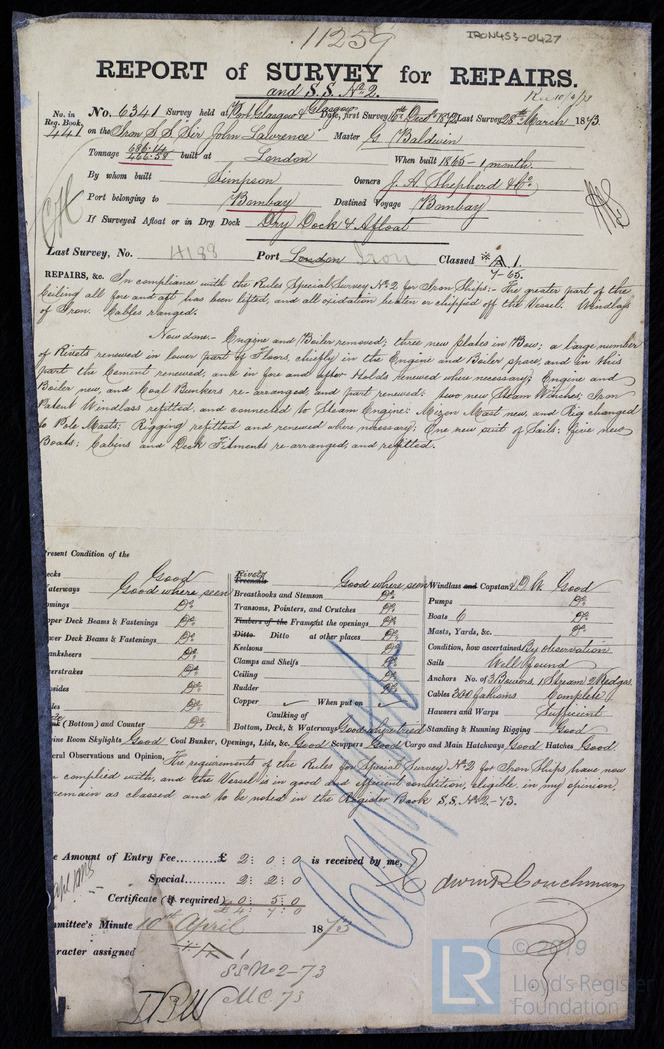 11259
IRON453-0427
REPORT of SURVEY for REPAIRS.
and S.S. No 2.
Rec 10/4/73
No. in Reg. Book. 441
No. 6341 Survey held at Port Glasgow & Glasgow Date, First Survey 16th Decr 1872 Last Survey 28th March 1873.
on the Iron S.S. "Sir John Lawrence" Master G. Baldwin
Tonnage 686.14 466.58 built at London When built 1865 - 1 month.
By whom built Simpson Owners J. A. Shepherd & Co.
Port belonging to Bombay Destined Voyage Bombay
If Surveyed Afloat or in Dry Dock Dry Dock & Afloat
Last Survey, No. 4188 Port London Iron Classed A 1.
7-65.
REPAIRS, &c. In compliance with the Rules Special Survey No 2 for Iron Ships:- The greater part of the
Ceiling all fore and aft has been lifted, and all oxidation beaten or chipped off the Vessel. Windlass
of Iron. Cables ranged.
Now done:- Engine and Boiler removed; three new plates in Bow; a large number
of Rivets renewed in lower part of Floors, chiefly in the Engine and Boiler space, and in this
part the Cement renewed, and in fore and after Holds renewed where necessary; Engine and
Boiler new, and Coal Bunkers re-arranged, and part renewed: two new Steam Winches; Iron
Patent Windlass refitted, and connected to Steam Engine: Mizen Mast new, and Rig changed
to Pole Masts: Rigging refitted and renewed where necessary; One new suit of Sails; five new
Boats; Cabins and Deck Fitments re-arranged, and refitted.
Present Condition of the
ecks Good
aterways Good where seen
omings Do
pper Deck Beams & Fastenings Do
wer Deck Beams & Fastenings Do
anksheers Do
verstrakes Do
psides Do
les Do
(Bottom) and Counter Do
Rivets Treenails Good where seen
Breasthooks and Stemson Do
Transoms, Pointers, and Crutches Do
Timbers of the Frame at the openings Do
Ditto Ditto at other places Do
Keelsons Do
Clamps and Shelfs Do
Ceiling Do
Rudder Do
Copper When put on
Caulking of
Bottom, Deck, & Waterways Good where tried
Windlass and Capstan Good
Pumps Do
Boats 6 Do
Masts, Yards, &c. Do
Condition, how ascertained By observation
Sails Well found
Anchors No. of 3 Bowers, 1 Stream 2 Kedges
Cables 300 fathoms Complete
Hausers and Warps Sufficient
Standing & Running Rigging Good
ine Room Skylights Good Coal Bunker, Openings, Lids, &c. Good Scuppers Good Cargo and Main Hatchways Good Hatches Good
eral Observations and Opinion, The requirements of the Rules for Special Survey No 2 for Iron Ships have now
complied with, and the Vessel is in good and efficient condition, eligible, in my opinion,
remain as classed and to be noted in the Register Book S.S. No 2-73.
e Amount of Entry Fee......... £ 2: 0: 0 is received by me,
Special......... 2: 2: 0
Certificate (if required) 0: 5: 0
£ 4: 7: 0
Edwin R Couchman
mmittee's Minute 10th April 1873
racter assigned A 1
SS No 2-73
MC. 73
© 2019
LR
Lloyd's Register
Foundation